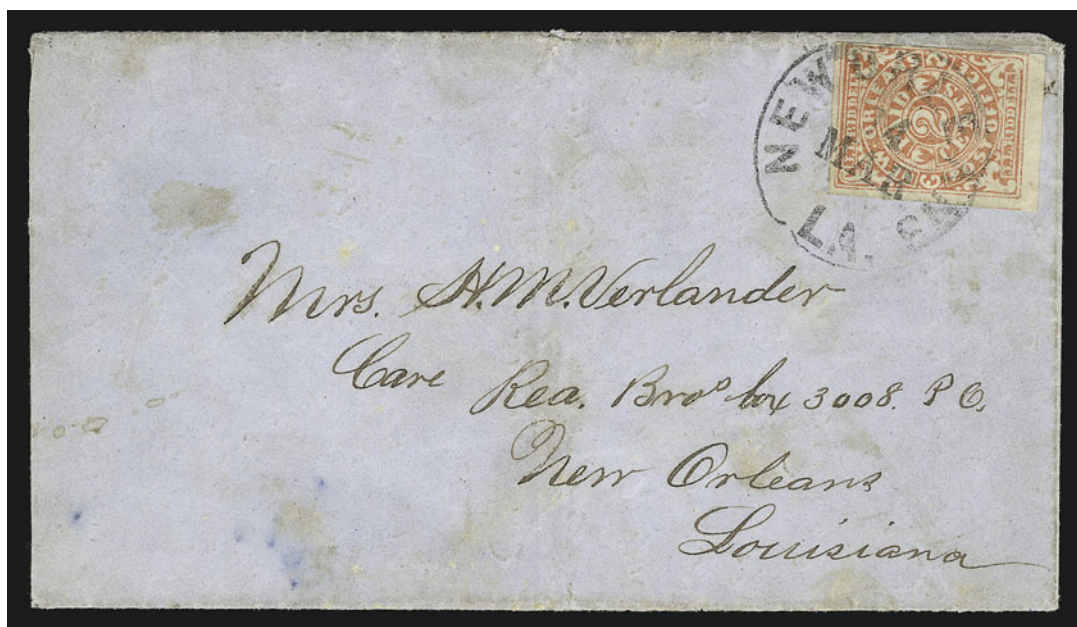 NEW ORLEANS
4
MAR
LA.
2
Mrs. H. M. Verlander
Care Rea. Bro^s box 3008. P O.
New Orleans
Louisiana